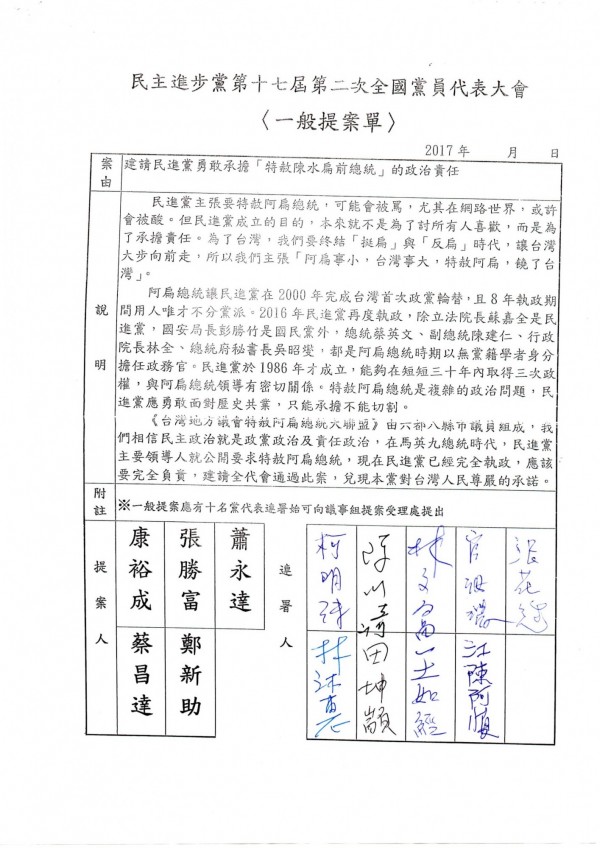 民主進步黨第十七屆第二次全國黨員代表大會
〈一般提案單〉
2017年　　月　　日
案由
建請民進黨勇敢承擔「特赦陳水扁前總統」的政治責任
說明
民進黨主張要特赦阿扁總統，可能會被罵，尤其在網路世界，或許
會被酸。但民進黨成立的目的，本來就不是為了討所有人喜歡，而是為
了承擔責任。為了台灣，我們要終結「挺扁」與「反扁」時代，讓台灣
大步向前走，所以我們主張「阿扁事小，台灣事大，特赦阿扁，饒了台
灣」。
阿扁總統讓民進黨在2000年完成台灣首次政黨輪替，且8年執政期
間用人唯才不分黨派。2016年民進黨再度執政，除立法院長蘇嘉全是民
進黨，國安局長彭勝竹是國民黨外，總統蔡英文、副總統陳建仁、行政
院長林全、總統府秘書長吳昭燮，都是阿扁總統時期以無黨籍學者身分
擔任政務官。民進黨於1986年才成立，能夠在短短三十年內取得三次政
權，與阿扁總統領導有密切關係。特赦阿扁總統是複雜的政治問題，民
進黨應勇敢面對歷史共業，只能承擔不能切割。
《台灣地方議會特赦阿扁總統大聯盟》由六都八縣市議員組成，我
們相信民主政治就是政黨政治及責任政治，在馬英九總統時代，民進黨
主要領導人就公開要求特赦阿扁總統，現在民進黨已經完全執政，應該
要完全負責，建請全代會通過此案，兌現本黨對台灣人民尊嚴的承諾。
附註
※一般提案應有十名黨代表連署始可向議事組提案受理處提出
提案人
康裕成
張勝富
蕭永達
蔡昌達
鄭新助
連署人
田坤
王如經
江陳阿
張花冠